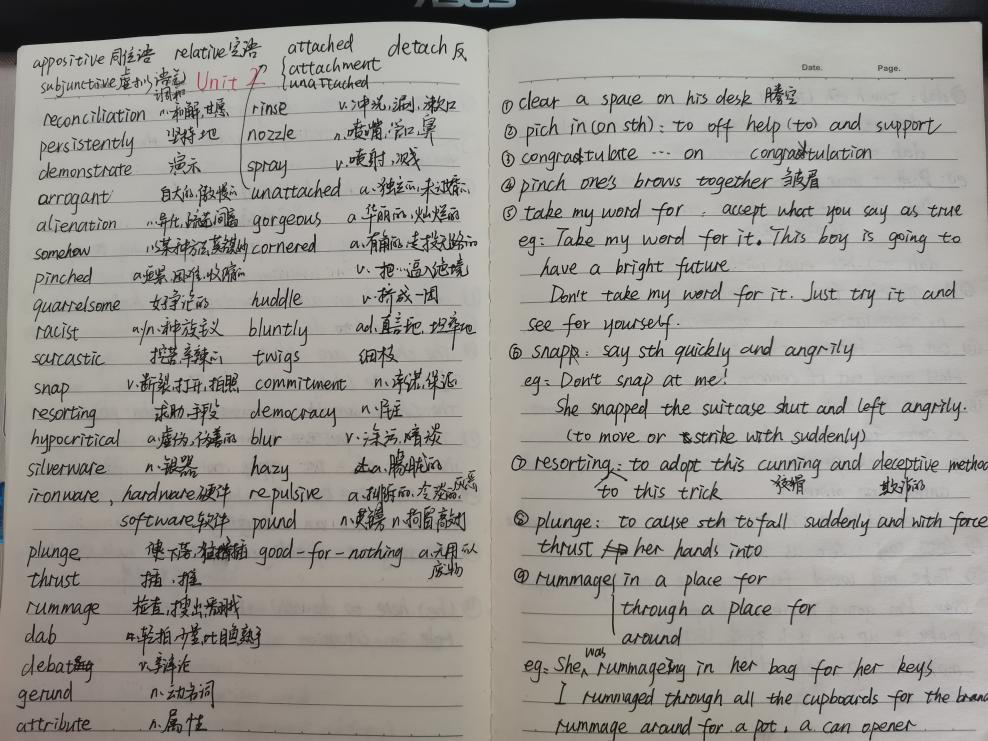 ASUS
appositive 同位语 relative 定语 attached detach 反
attachment
subjunctive 虚拟 Unit 2 unattached
reconciliation n. 和解, 甘愿 rinse v. 冲洗, 漱口
persistently 坚持地 nozzle n. 喷嘴, 管口, 鼻
demonstrate 演示 spray v. 喷射, 溅
arrogant 自大的, 傲慢的 unattached a. 独立的, 未订婚的
alienation n. 异化, 疏远 gorgeous a. 华丽的, 灿烂的
somehow cornered a. 有角的, 走投无路的
pinched a. v. 把…逼入绝境
quarrelsome 好争论的 huddle v. 挤成一团
racist a./n. 种族主义 bluntly ad. 直言地, 坦率地
sarcastic 挖苦, 辛辣的 twigs 细枝
snap v. 断裂, 打开, 拍照 commitment n. 承诺, 保证
resorting 求助, 手段 democracy n. 民主
hypocritical a. 虚伪, 伪善的 blur v. 涂污, 暗淡
silverware n. 银器 hazy a. 朦胧的
ironware, hardware 硬件 repulsive a. 排斥的, 冷淡的, 厌恶
software 软件 pound
plunge 使下落 good-for-nothing a. 无用的
废物
thrust 插, 推
rummage 检查, 搜出
dab n. 轻拍
debate v. 辩论
gerund n. 动名词
attribute n. 属性
Date. Page.
① clear a space on his desk 腾空
② pich in (on sth): to off help (to) and support
③ congratulate … on congratulation
④ pinch one's brows together 皱眉
⑤ take my word for: accept what you say as true
eg: Take my word for it. This boy is going to
have a bright future
Don't take my word for it. Just try it and
see for yourself.
⑥ snap: say sth quickly and angrily
eg: Don't snap at me!
She snapped the suitcase shut and left angrily.
(to move or strike with suddenly)
⑦ resorting: to adopt this cunning and deceptive method
to this trick 狡猾 欺诈的
⑧ plunge: to cause sth to fall suddenly and with force
thrust her hands into
⑨ rummage in a place for
through a place for
around
eg: She was rummaging in her bag for her keys
I rummaged through all the cupboards for the brand
rummage around for a pot, a can opener